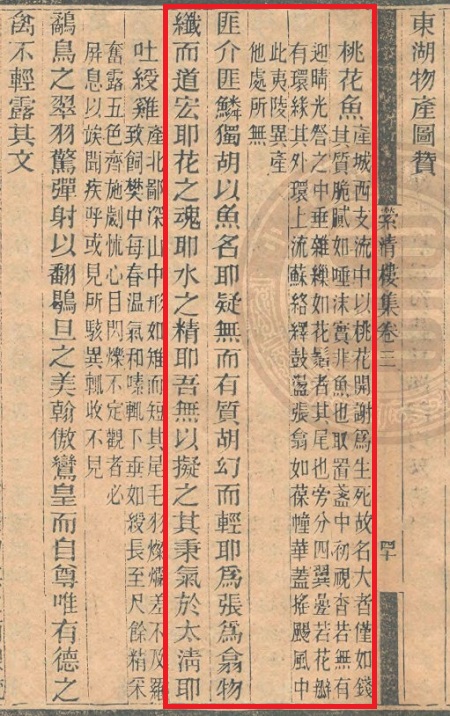 東湖物產圖贊
紫清樓集卷三
四十
桃花魚產城西支流中以桃花開謝爲生死故名大者僅如錢
其質脆膩如唾沫實非魚也取置盞中初視杳若無有
迎晴光詧之中垂雜纓如花鬚者其尾也旁分四翼曼若花瓣
有環綠其外環上流蘇絡繹鼓盪張翕如葆幢華蓋搖颺風中
此夷陵異產
他處所無
匪介匪鱗獨胡以魚名耶疑無而有質胡幻而輕耶爲張爲翕物
纖而道宏耶花之魂耶水之精耶吾無以擬之其秉氣於太淸耶
吐綬雞產北鄙深山中形如雉而短其尾毛羽燦爛差不及羅
致飼樊中每春温氣和嗉輒下垂如綬長至尺餘精采
奮露五色齊施劌怵心目閃爍不定觀者必
屏息以竢聞疾呼或見所駭異輒收不見
鷸鳥之翠羽驚彈射以翻鶡旦之美翰傲鸞皇而自尊唯有德之
禽不輕露其文